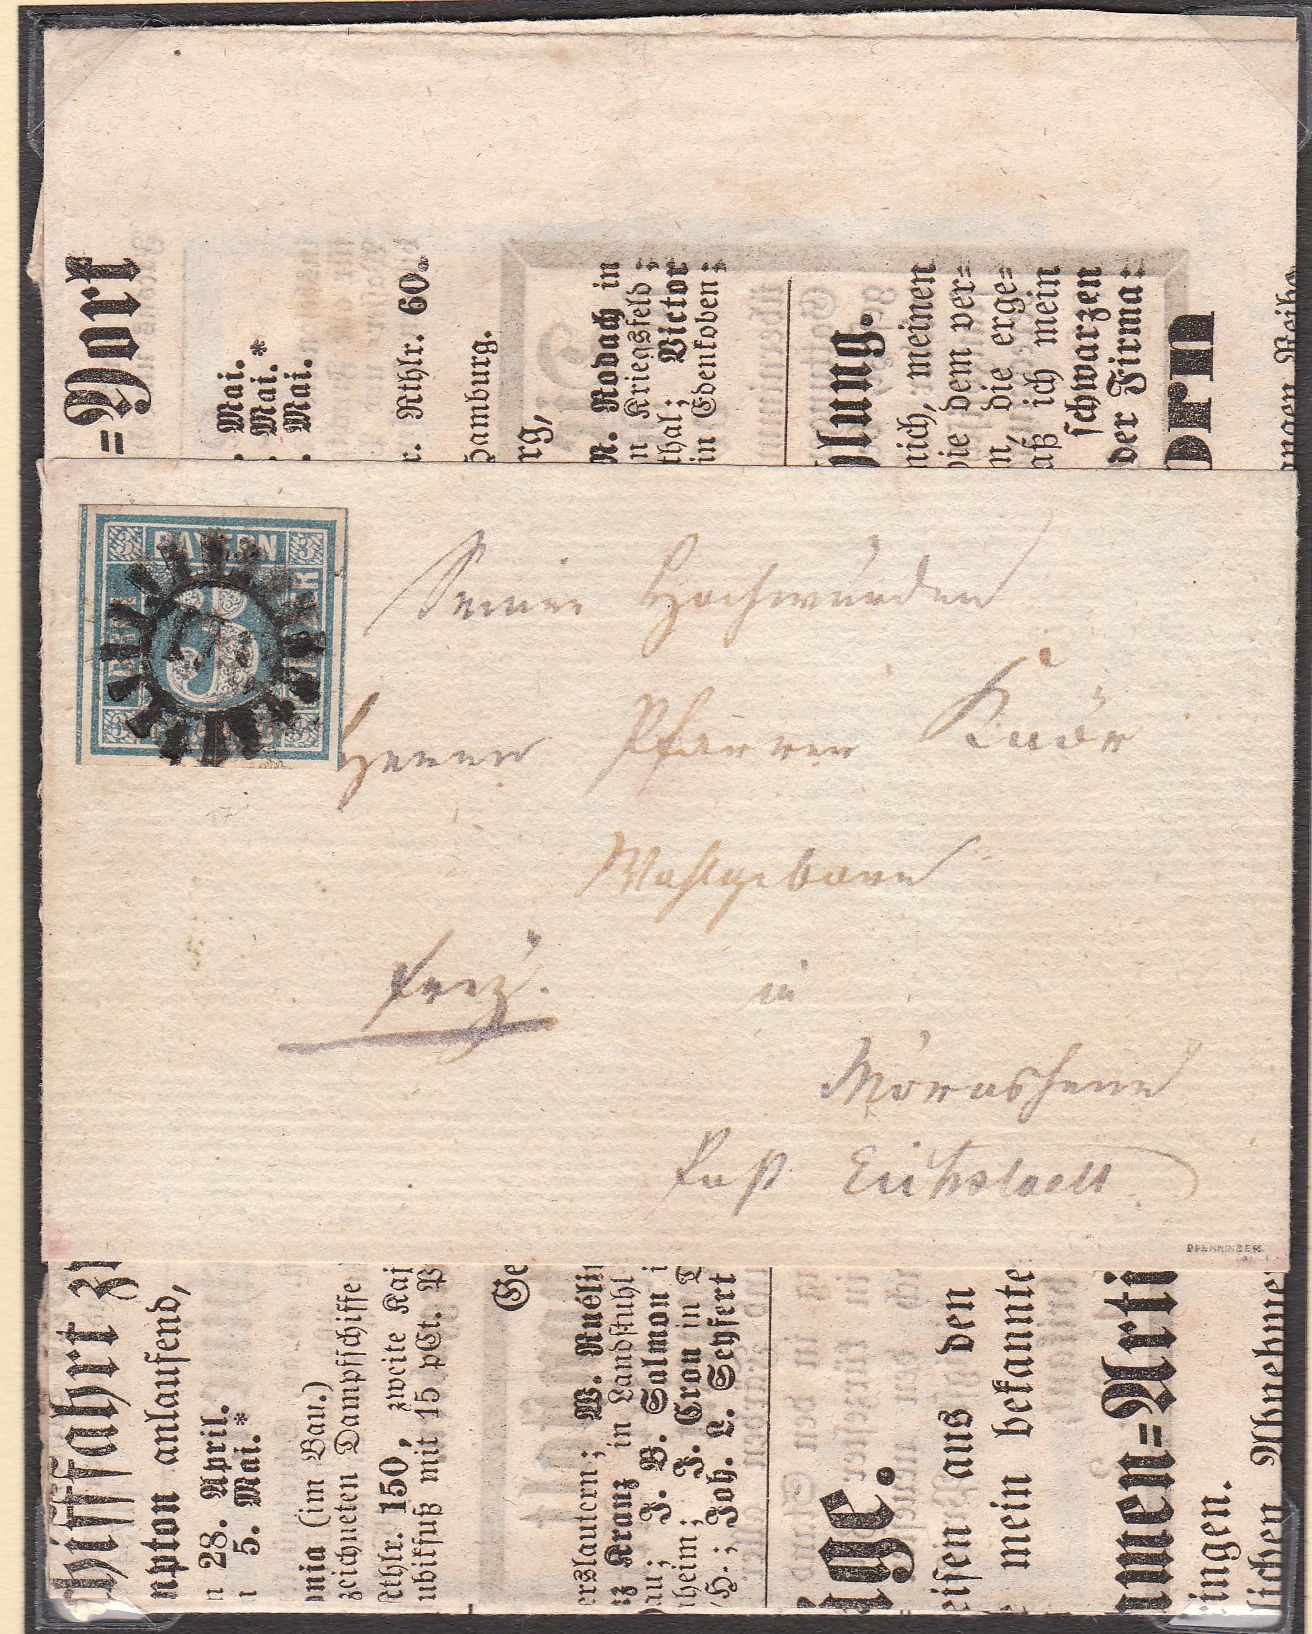 =York
Mai.
Mai.*
Mai.
r. Rthlr. 60.
Hamburg.
rg,
N. Rodach in
n Kriegsfeld;
thal; Victor
in Edenkoben;
lung.
mich, meinen
wie dem ver=
n, die erge=
aß ich mein
schwarzen
der Firma:
orn
BAYERN
DREI
3
Seiner Hochwürden
Herrn Pfarrer
Wohlgeborn
in
Mörnsheim
Post Eichstaett
PFENNINGER
hifffahrt
npton anlaufend,
n 28. April.
n 5. Mai.*
nia (im Bau.)
zeichneten Dampfschiffe
Rthlr. 150, zweite Kaj
ubikfuß mit 15 pCt. P
Ge
erslautern; W. Ruëlin
z Kranz in Landstuhl
au; J. B. Salmon i
heim; J. Cron in
H.; Joh. L. Seyfert
ige.
eisen aus den
mein bekannte
men=Arti
ingen.
lichen Abnehme